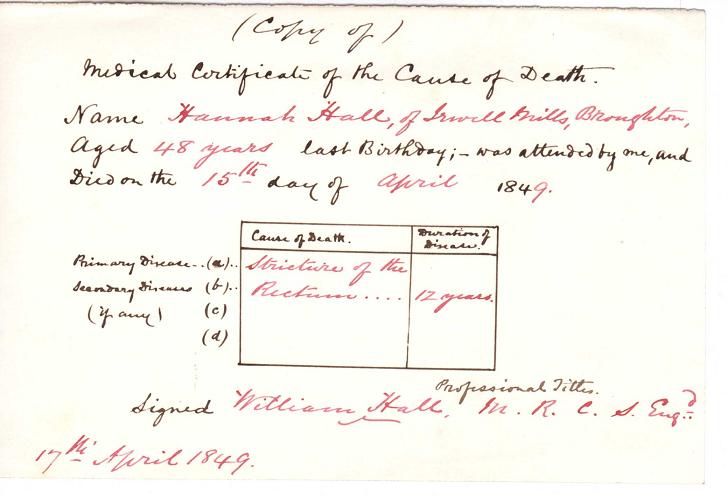 (Copy of)
Medical Certificate of the Cause of Death.
Name Hannah Hall, of Irwell Mills, Broughton,
Aged 48 years last Birthday; – was attended by me, and
Died on the 15th day of April 1849.
Cause of Death. Duration of Disease.
Primary Disease .. (a) .. Stricture of the
Secondary Diseases (b) .. Rectum .... 12 years.
(if any) (c)
(d)
Professional Titles.
Signed William Hall, M. R. C. S. Engd
17th April 1849.